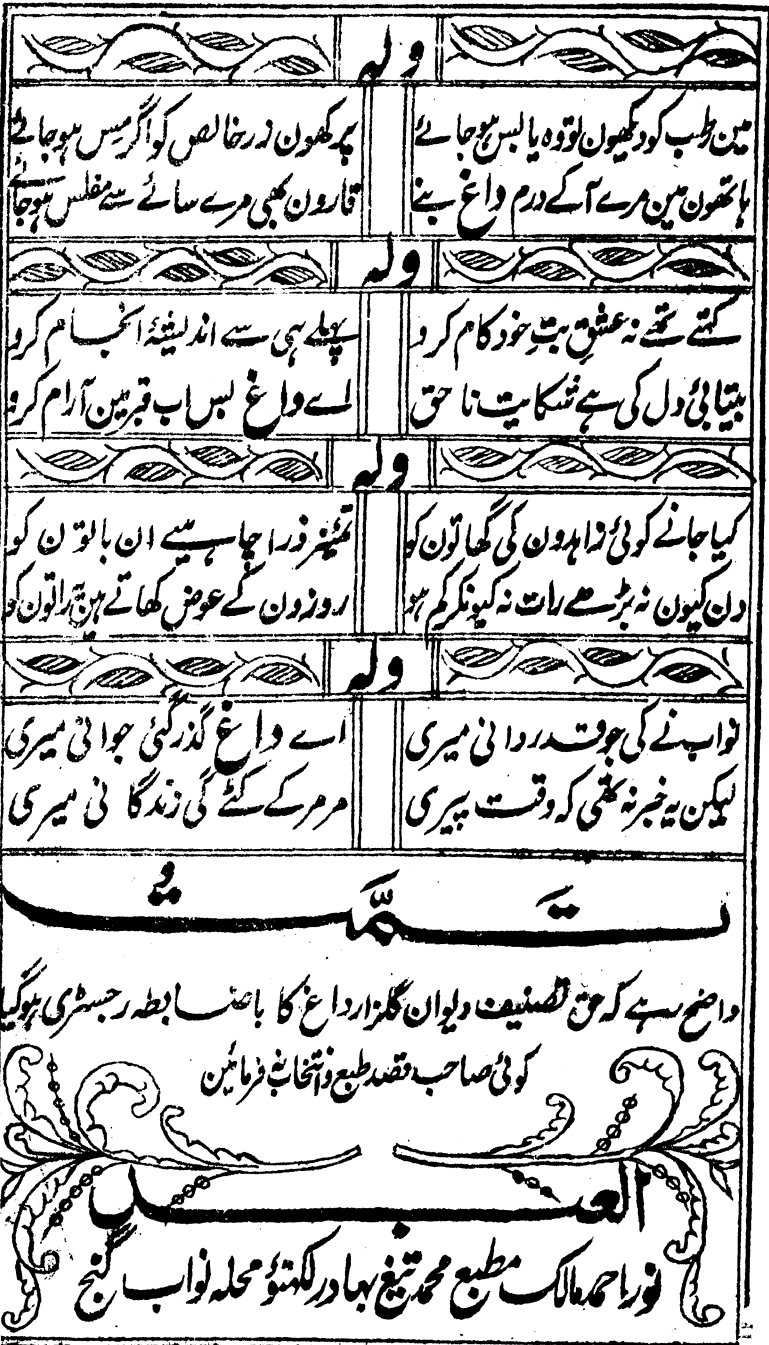 ولہ
مین رطب کو دیکھیون تو وہ یا بس ہو جائے پرکھون زر خالص کو اگر مِس ہو جائے
ہاتھون مین مرے آکے درم داغ بنے قارون بھی مرے سائے سے مفلس ہو جائے
ولہ
کہتے تھے نہ عشقِ بتِ خود کام کرو پہلے ہی سے اندیشۂ انجام کرو
بیتابیٔ دل کی ہے شکایت ناحق اے داغ بس اب قبر مین آرام کرو
ولہ
کیا جانے کوئی زاہدون کی گھاتون کو تمیز ذرا چاہیے ان باتون کو
دن کیون نہ بڑھے رات نہ کیونکر کم ہو روزون کے عوض کھاتے ہین یہ راتون کو
ولہ
نواب نے کی جو قدردانی میری اے داغ گذر گئی جوانی میری
لیکن یہ خبر نہ تھی کہ وقت پیری مرمر کے کٹے گی زندگانی میری
تَمَّتْ
واضح رہے کہ حق تصنیف دیوان گلزار داغ کا باضابطہ رجسٹری ہوگیا
کوئی صاحب قصد طبع و انتخاب نہ فرمائین
العبد
نور احمد مالک مطبع محمد تیغ بہادر لکھنؤ محلہ نواب گنج